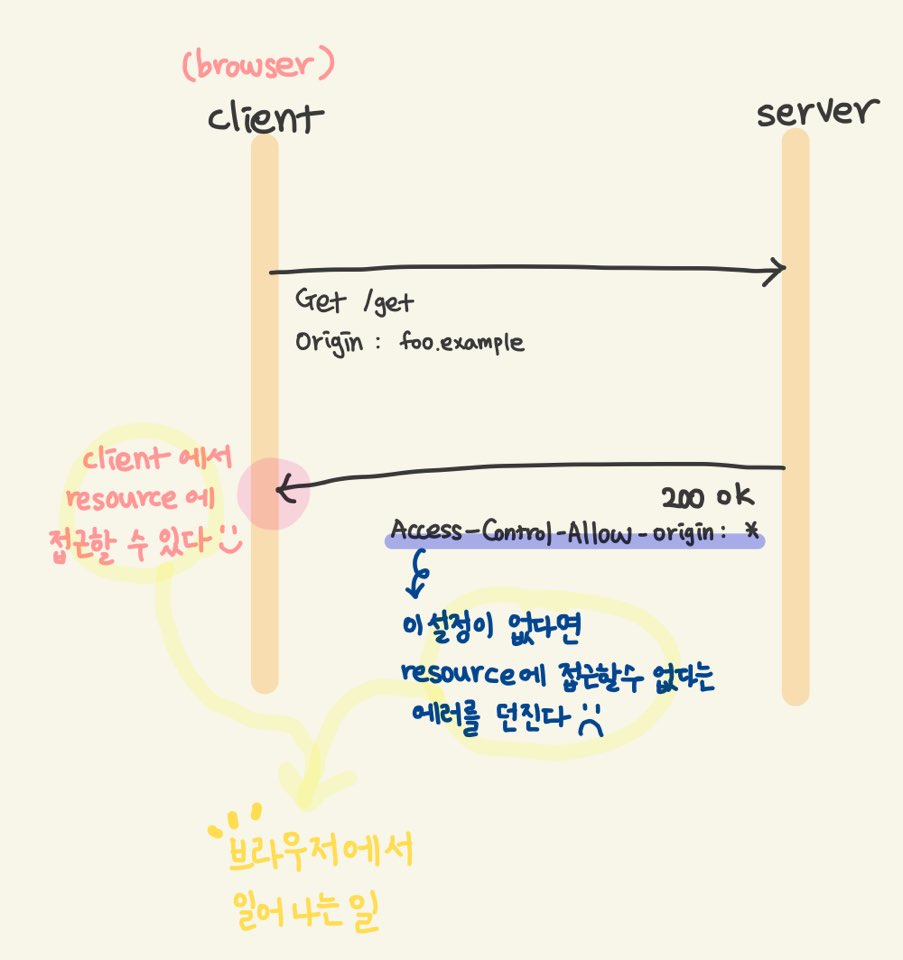 (browser)
client
server
Get /get
Origin : foo.example
client에서
resource에
접근할 수 있다
200 ok
Access-Control-Allow-origin: *
이 설정이 없다면
resource에 접근할수 없다는
에러를 던진다
브라우저에서
일어나는 일